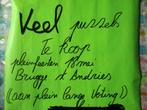 Veel puzzels
Te koop
pleinfeesten 18 mei
Brugge St Andries
(aan plein Lange Voting)